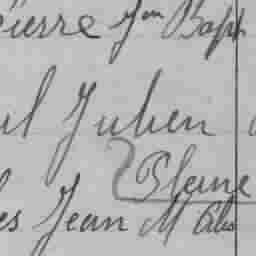 Pierre Jean Bapt
ul Julien
Plaine
es Jean M